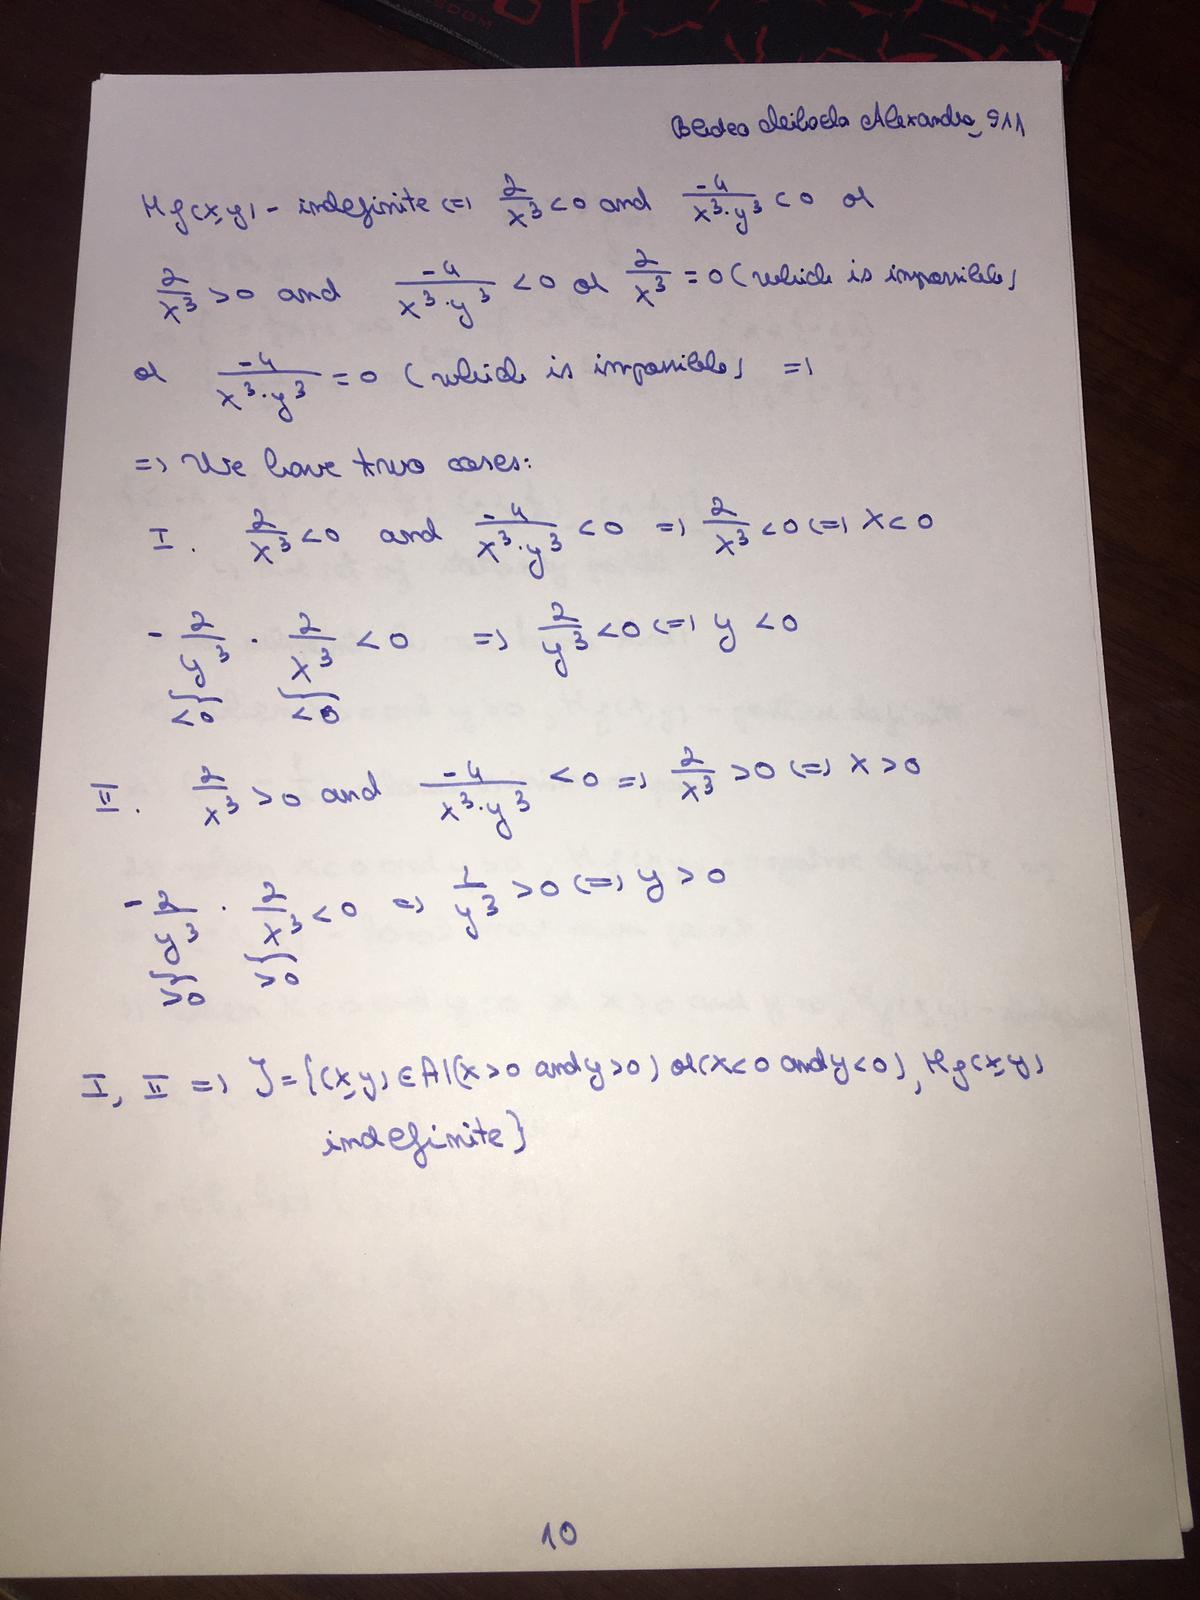 EDOM
Alexandra, 911
Hf(x,y) - indefinite (=) 2/x³ < 0 and -4/(x³·y³) < 0 or
2/x³ > 0 and -4/(x³·y³) < 0 or 2/x³ = 0 (which is impossible)
or -4/(x³·y³) = 0 (which is impossible) =)
=) We have two cases:
I. 2/x³ < 0 and -4/(x³·y³) < 0 =) 2/x³ < 0 (=) x < 0
- 2/y³ · 2/x³ < 0 =) 2/y³ < 0 (=) y < 0
<0 <0
II. 2/x³ > 0 and -4/(x³·y³) < 0 =) 2/x³ > 0 (=) x > 0
- 2/y³ · 2/x³ < 0 =) 2/y³ > 0 (=) y > 0
>0 >0
I, II =) J = {(x,y) ∈ A | (x>0 and y>0) or (x<0 and y<0), Hf(x,y)
indefinite}
10